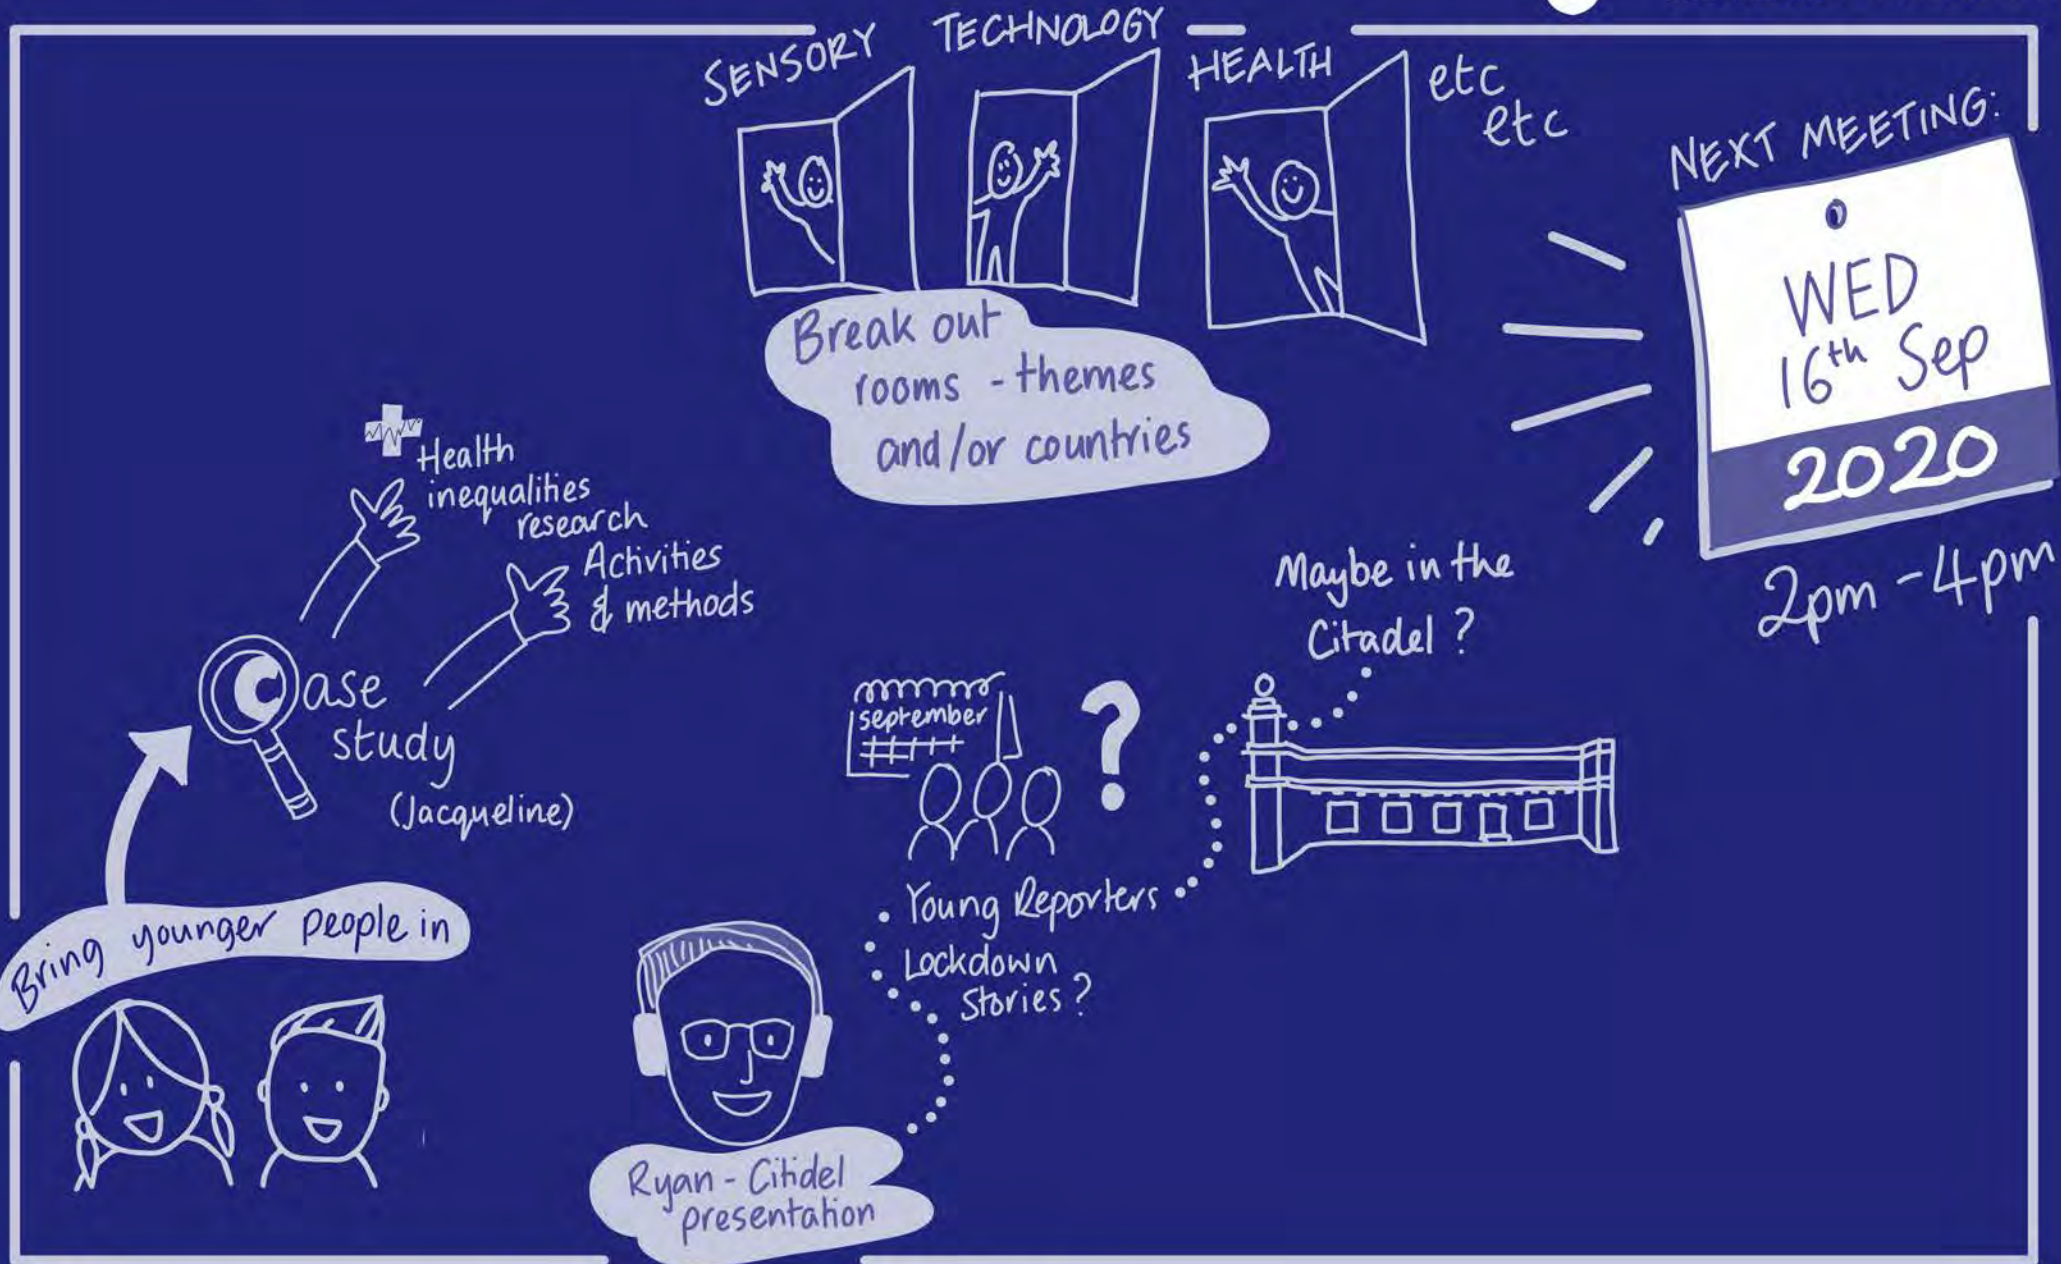 SENSORY
TECHNOLOGY
HEALTH
etc
etc
Break out
rooms - themes
and/or countries
NEXT MEETING:
WED
16th Sep
2020
2pm - 4pm
Health
inequalities
research
Activities
& methods
Case
study
(Jacqueline)
Bring younger people in
Maybe in the
Citadel?
september
?
Young Reporters
Lockdown
Stories?
Ryan - Citidel
presentation